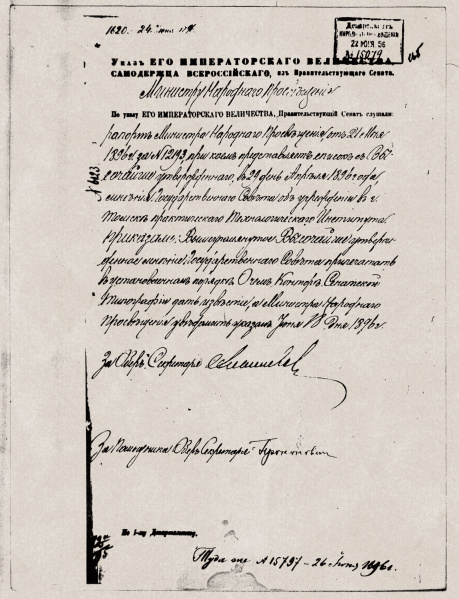 Департаментъ
НАРОДНАГО ПРОСВѢЩЕНІЯ
22 ІЮНЯ 96
№ 15079
Указъ ЕГО ИМПЕРАТОРСКАГО ВЕЛИЧЕСТВА,
САМОДЕРЖЦА ВСЕРОССІЙСКАГО, изъ Правительствующаго Сената.
Министру Народнаго Просвѣщенія
По указу ЕГО ИМПЕРАТОРСКАГО ВЕЛИЧЕСТВА, Правительствующій Сенатъ слушали:
рапортъ Министра Народнаго Просвѣщенія отъ 21 Мая
1896 г. за № 12193, при коемъ представляетъ списокъ съ Вы-
сочайше утвержденнаго, въ 29 день Апрѣля 1896 года
мнѣнія Государственнаго Совѣта объ учрежденіи въ г.
Томскѣ практическаго Технологическаго Института
приказали: Вышеупомянутое Высочайше утверж-
денное мнѣніе Государственнаго Совѣта припечатать
въ установленномъ порядкѣ. О чемъ Конторѣ Сенатской
Типографіи дать извѣстіе, а Министра Народнаго
Просвѣщенія увѣдомить указомъ. Іюня 18 дня 1896 г.
За Оберъ Секретаря
За Помощника Оберъ Секретаря
По 1-му Департаменту.
Туда же № 15797 - 26 Іюня 1896 г.